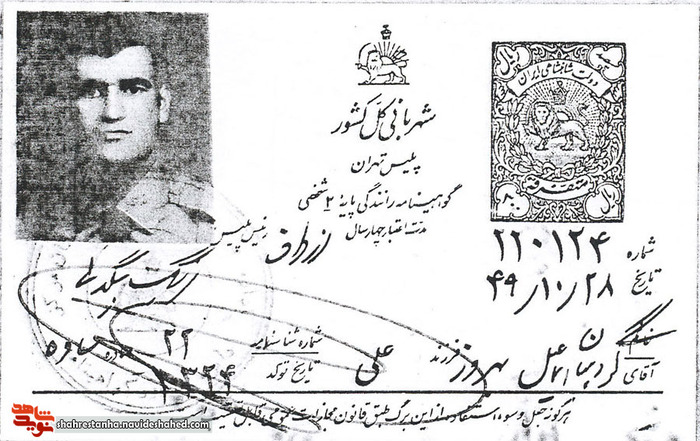 شهربانی کل کشور
پلیس تهران
گواهینامه رانندگی پایهٔ ۲ شخصی
مدت اعتبار چهار سال
از طرف رئیس پلیس
دولت شاهنشاهی ایران
متفرقه
ریال
شماره ۲۲۰۱۲۴
تاریخ ۴۹/۱۰/۲۸
آقای بهروز فرزند علی
شماره شناسنامه ۲۲ ساوه
تاریخ تولد ۱۳۲۴
هرگونه جعل و سوء استفاده از این برگ طبق قانون مجازات عمومی قابل است
نوید شاهد
shahrestanha.navideshahed.com